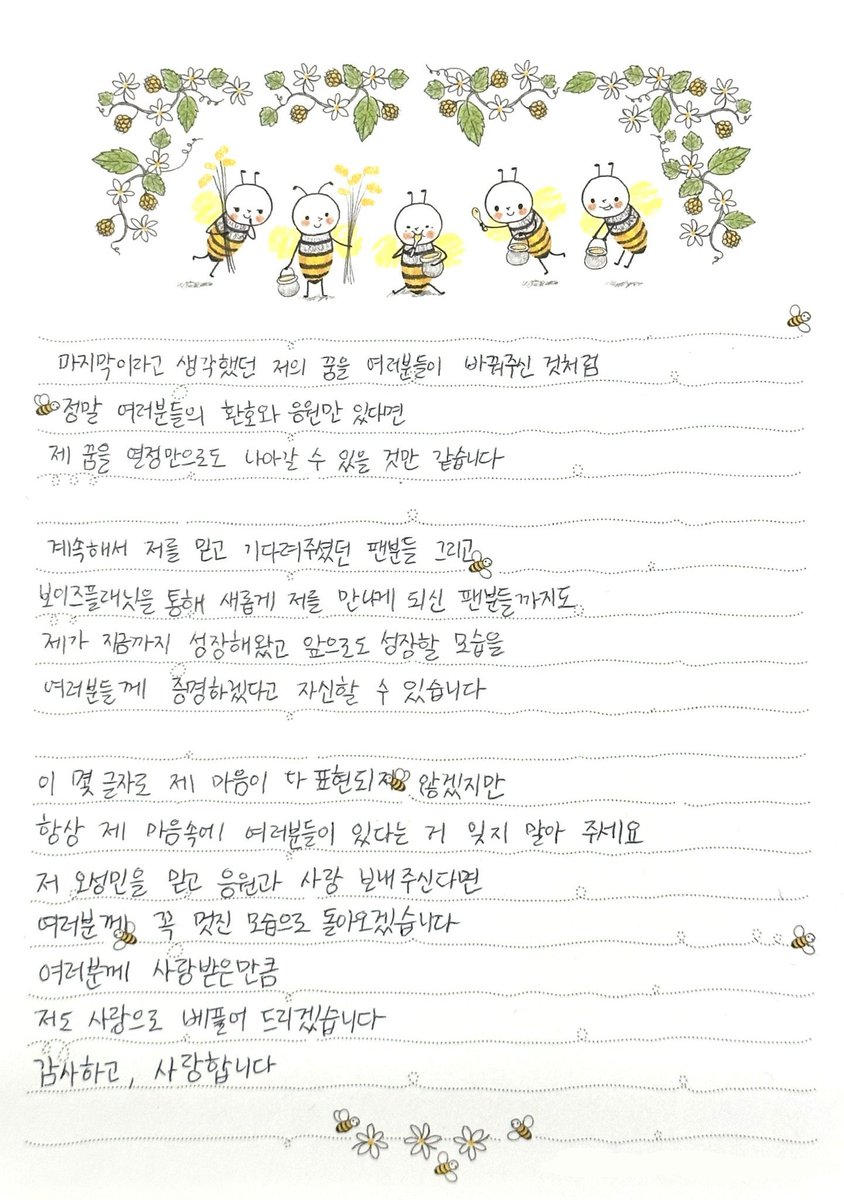 마지막이라고 생각했던 저의 꿈을 여러분들이 바꿔주신 것처럼
정말 여러분들의 환호와 응원만 있다면
제 꿈을 열정만으로도 나아갈 수 있을 것만 같습니다
계속해서 저를 믿고 기다려주셨던 팬분들 그리고
보이즈플래닛을 통해 새롭게 저를 만나게 되신 팬분들까지도
제가 지금까지 성장해왔고 앞으로도 성장할 모습을
여러분들께 증명하겠다고 자신할 수 있습니다
이 몇 글자로 제 마음이 다 표현되지 않겠지만
항상 제 마음속에 여러분들이 있다는 거 잊지 말아 주세요
저 오성민을 믿고 응원과 사랑 보내주신다면
여러분께 꼭 멋진 모습으로 돌아오겠습니다
여러분께 사랑받은만큼
저도 사랑으로 베풀어 드리겠습니다
감사하고, 사랑합니다